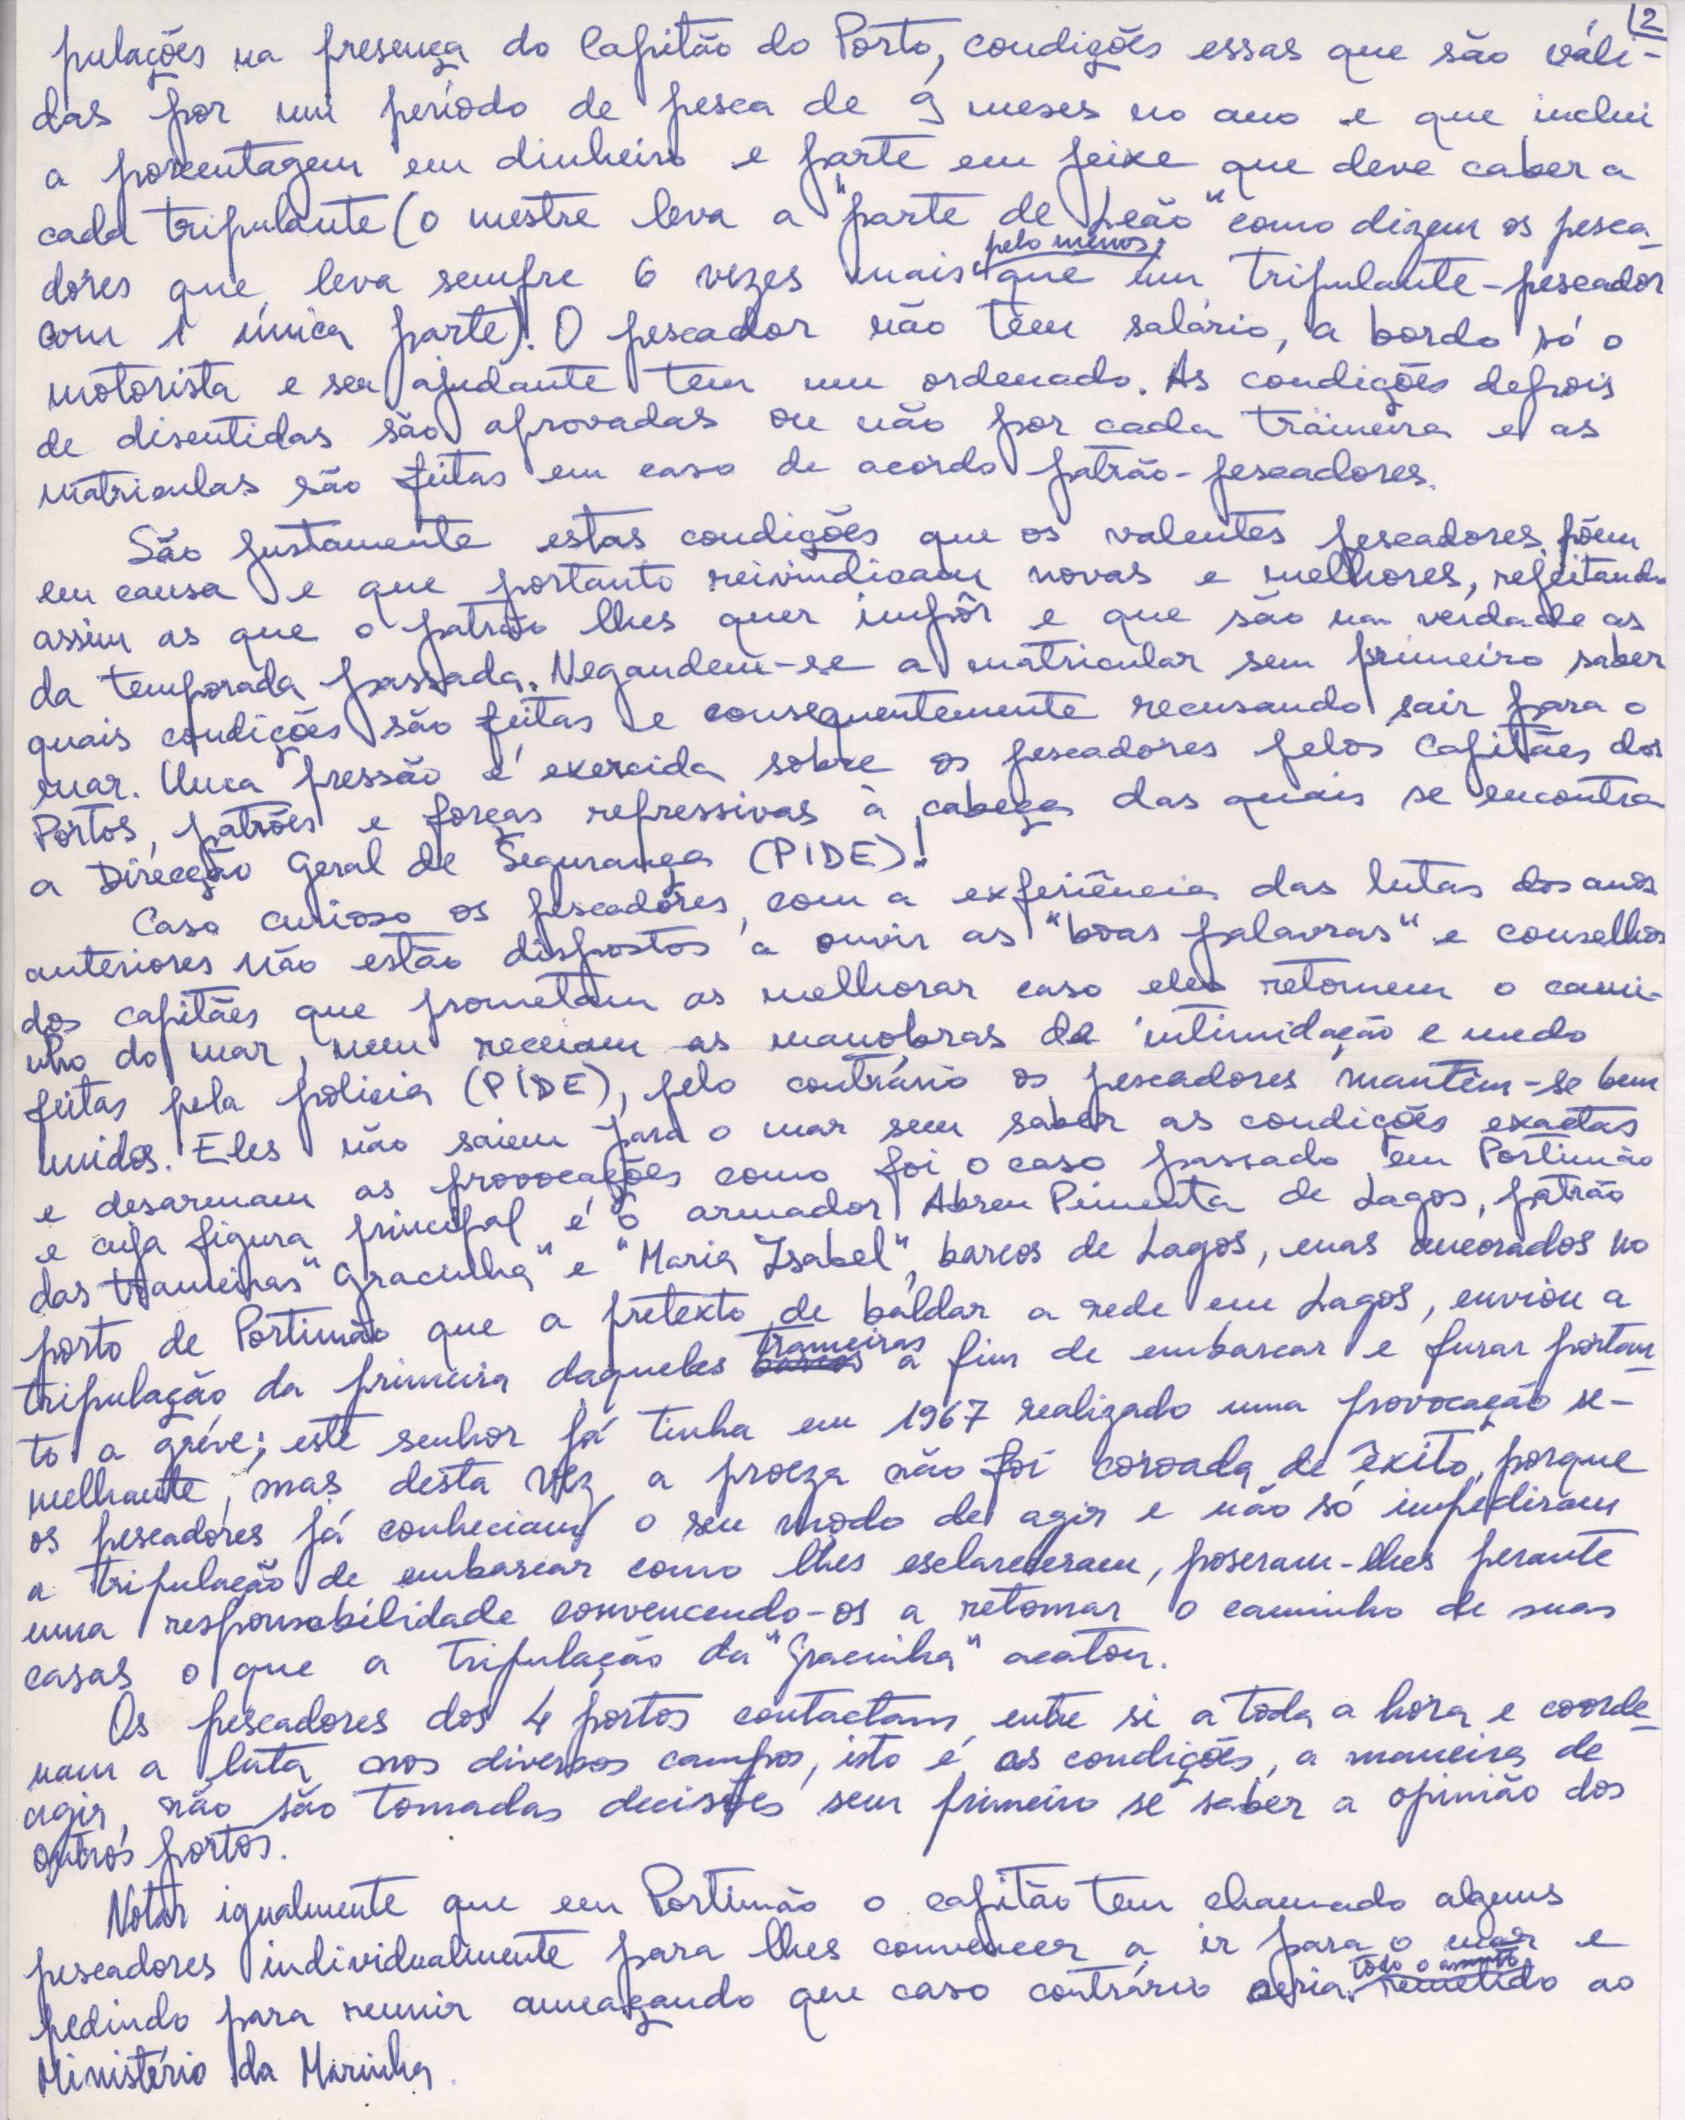 12
pulações na presença do Capitão do Porto, condições essas que são váli-
das por um período de pesca de 9 meses no ano e que inclui
a porcentagem em dinheiro e parte em peixe que deve caber a
cada tripulante (o mestre leva a "parte de Leão" como dizem os pesca-
dores que leva sempre 6 vezes mais pelo menos, que um tripulante-pescador
com 1 única parte). O pescador não têm salário, a bordo só o
motorista e seu ajudante tem um ordenado. As condições depois
de discutidas são aprovadas ou não por cada traineira e as
matriculas são feitas em caso de acordo patrão-pescadores.
São justamente estas condições que os valentes pescadores põem
em causa e que portanto reivindicam novas e melhores, rejeitando
assim as que o patrão lhes quer impôr e que são na verdade as
da temporada passada. Negandem-se a matricular sem primeiro saber
quais condições são feitas e consequentemente recusando sair para o
mar. Uma pressão é exercida sobre os pescadores pelos Capitães dos
Portos, patrões e forças repressivas à cabeça das quais se encontra
a Direcção Geral de Segurança (PIDE)!
Caso curioso os pescadores, com a experiência das lutas dos anos
anteriores não estão dispostos a ouvir as "boas palavras" e conselhos
dos capitães que prometam as melhorar caso eles retomem o cami-
nho do mar, nem receiam as manobras de intimidação e medo
feitas pela policia (PIDE), pelo contrário os pescadores mantêm-se bem
unidos. Eles não saiem para o mar sem saber as condições exactas
e desarmam as provocações como foi o caso passado em Portimão
e cuja figura principal é o armador Abreu Pimenta de Lagos, patrão
das traineiras "Gracinha" e "Maria Isabel", barcos de Lagos, mas ancorados no
porto de Portimão que a pretexto de baldar a rede em Lagos, enviou a
tripulação da primeira daqueles traineiras a fim de embarcar e furar portan-
to a gréve; este senhor já tinha em 1967 realizado uma provocação se-
melhante, mas desta vez a proeza não foi coroada de êxito, porque
os pescadores já conheciam o seu modo de agir e não só impediram
a tripulação de embarcar como lhes esclareceram, poseram-lhes perante
uma responsabilidade convencendo-os a retomar o caminho de suas
casas o que a tripulação da "Gracinha" acatou.
Os pescadores dos 4 portos contactam entre si a toda a hora e coorde-
nam a luta nos diversos campos, isto é, as condições, a maneira de
agir, não são tomadas decisões sem primeiro se saber a opinião dos
outros portos.
Notar igualmente que em Portimão o capitão tem chamado alguns
pescadores individualmente para lhes convencer a ir para o mar e
pedindo para reunir ameaçando que caso contrário seria todo o assunto remetido ao
Ministério da Marinha.